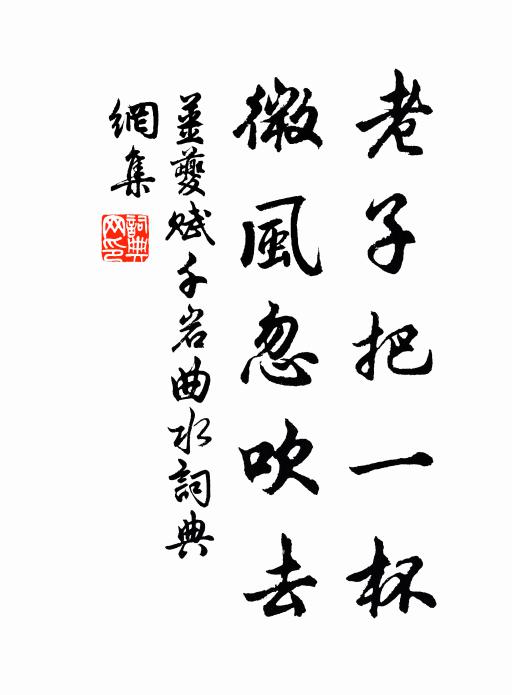 老子把一杯
微風忽吹去
薑夔賦千岩曲水詞典
網集
詞典
网印